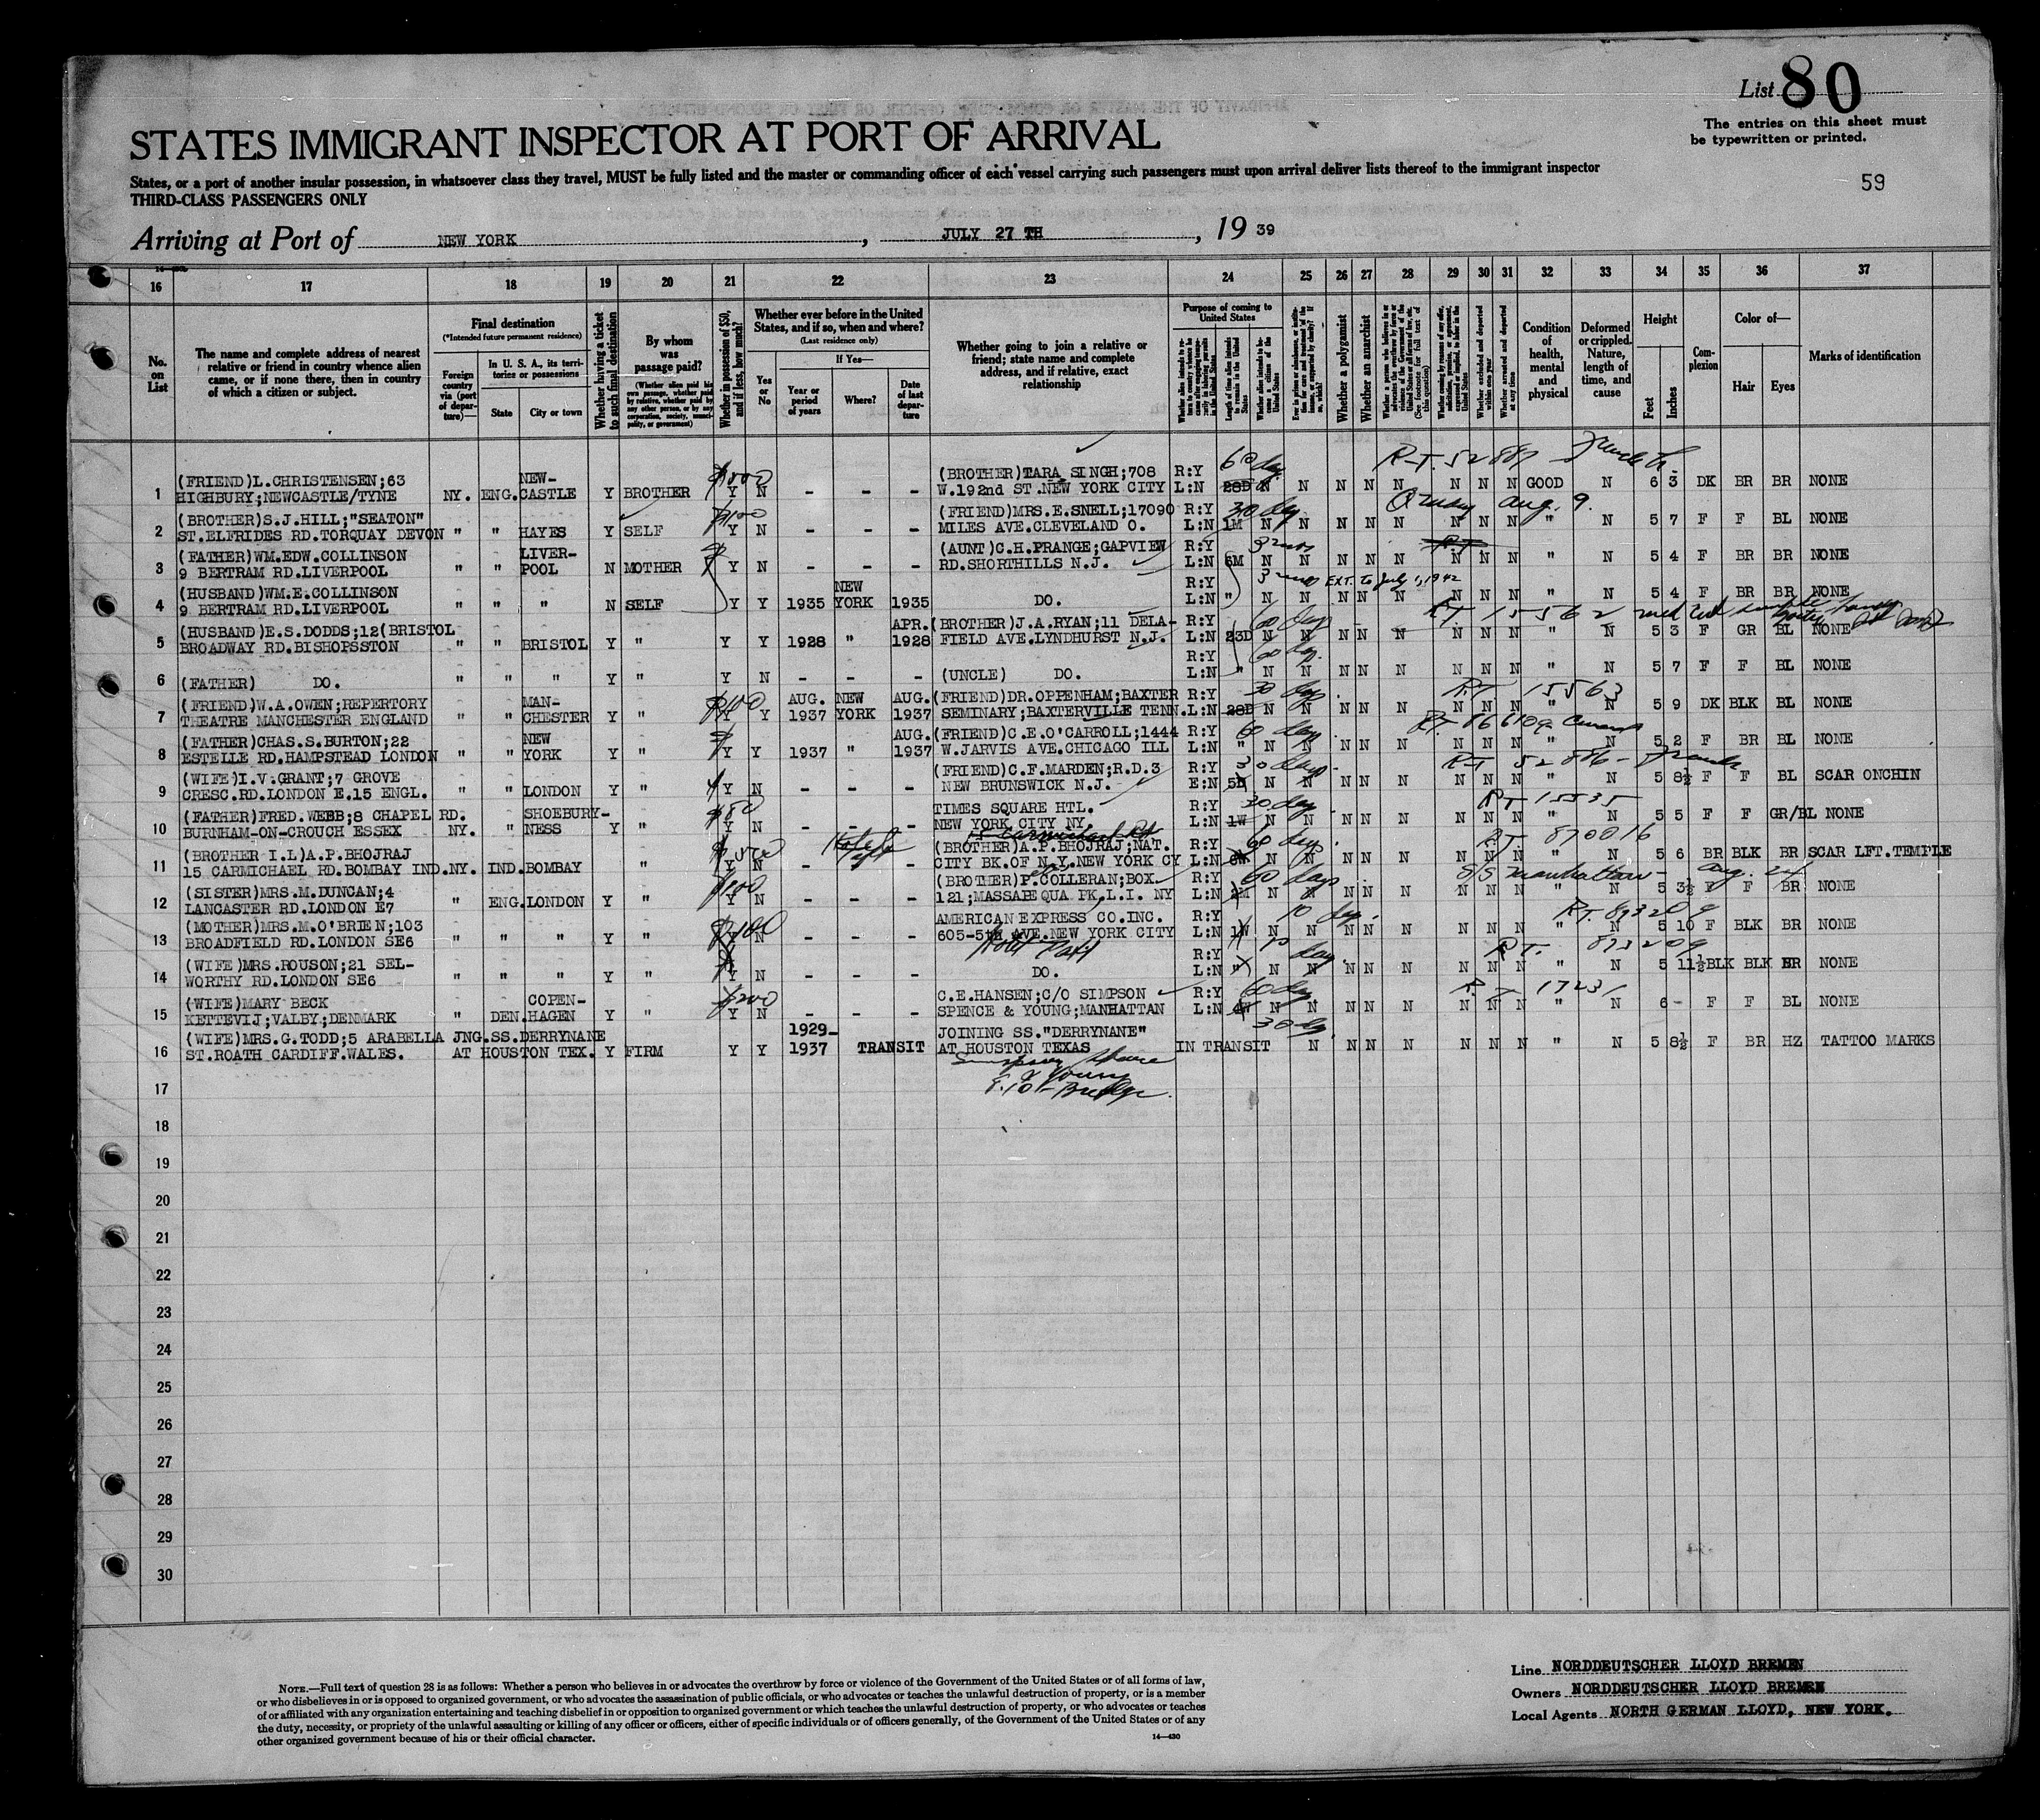 List 80
The entries on this sheet must
be typewritten or printed.
STATES IMMIGRANT INSPECTOR AT PORT OF ARRIVAL
States, or a port of another insular possession, in whatsoever class they travel, MUST be fully listed and the master or commanding officer of each vessel carrying such passengers must upon arrival deliver lists thereof to the immigrant inspector
THIRD-CLASS PASSENGERS ONLY
59
Arriving at Port of NEW YORK, JULY 27 TH, 19 39
16 17 18 19 20 21 22 23 24 25 26 27 28 29 30 31 32 33 34 35 36 37
No. on List
The name and complete address of nearest relative or friend in country whence alien came, or if none there, then in country of which a citizen or subject.
Final destination
(*Intended future permanent residence)
Foreign country via (port of departure)—
In U. S. A., its territories or possessions
State
City or town
Whether having a ticket to such final destination
By whom was passage paid?
(Whether alien paid his own passage, whether paid by relative, whether paid by any other person, or by any corporation, society, municipality, or government)
Whether in possession of $50, and if less, how much?
Whether ever before in the United States, and if so, when and where?
(Last residence only)
Yes or No
If Yes—
Year or period of years
Where?
Date of last departure
Whether going to join a relative or friend; state name and complete address, and if relative, exact relationship
Purpose of coming to United States
Length of time alien intends to remain in the United States
Whether alien intends to become a citizen of the United States
Whether a polygamist
Whether an anarchist
Condition of health, mental and physical
Deformed or crippled. Nature, length of time, and cause
Height
Feet
Inches
Complexion
Color of—
Hair
Eyes
Marks of identification
60 days R-T. 52889
$500
1 (FRIEND)L.CHRISTENSEN;63 NEW- (BROTHER)TARA SINGH;708 R:Y
HIGHBURY;NEWCASTLE/TYNE NY. ENG. CASTLE Y BROTHER Y N - - - W.192nd ST.NEW YORK CITY L:N 28D N N N N N N N N GOOD N 6 3 DK BR BR NONE
$100 30 days Aug. 9.
2 (BROTHER)S.J.HILL;"SEATON" (FRIEND)MRS.E.SNELL;17090 R:Y
ST.ELFRIDES RD.TORQUAY DEVON " " HAYES Y SELF Y N - - - MILES AVE.CLEVELAND O. L:N 1M N N N N N N N N " N 5 7 F F BL NONE
3 (FATHER)WM.EDW.COLLINSON LIVER- (AUNT)C.H.PRANGE;GAPVIEW R:Y 3 mos R.T.
9 BERTRAM RD.LIVERPOOL " " POOL N MOTHER Y N - - - RD.SHORTHILLS N.J. L:N 6M N N N N N N N N " N 5 4 F BR BR NONE
4 (HUSBAND)WM.E.COLLINSON NEW R:Y 3 mos EXT. to July 1, 1942
9 BERTRAM RD.LIVERPOOL " " " N SELF Y Y 1935 YORK 1935 DO. L:N " N N N N N N N N " N 5 4 F BR BR NONE
5 (HUSBAND)E.S.DODDS;12(BRISTOL APR. (BROTHER)J.A.RYAN;11 DELA- R:Y 60 days R.T. 15562
BROADWAY RD.BISHOPSSTON " " BRISTOL Y " Y Y 1928 " 1928 FIELD AVE.LYNDHURST N.J. L:N 23D N N N N N N N N " N 5 3 F GR BL NONE
R:Y 60 days.
6 (FATHER) DO. " " " Y " Y N - - - (UNCLE) DO. L:N " N N N N N N N N " N 5 7 F F BL NONE
7 (FRIEND)W.A.OWEN;REPERTORY MAN- $100 AUG. NEW AUG. (FRIEND)DR.OPPENHAM;BAXTER R:Y 30 days R.T. 15563
THEATRE MANCHESTER ENGLAND " " CHESTER Y " Y Y 1937 YORK 1937 SEMINARY;BAXTERVILLE TENN. L:N 28D N N N N N N N N " N 5 9 DK BLK BL NONE
8 (FATHER)CHAS.S.BURTON;22 NEW AUG. (FRIEND)C.E.O'CARROLL;1444 R:Y 60 days R.T. 866109
ESTELLE RD.HAMPSTEAD LONDON " " YORK Y " Y Y 1937 " 1937 W.JARVIS AVE.CHICAGO ILL L:N " N N N N N N N N " N 5 2 F BR BL NONE
9 (WIFE)I.V.GRANT;7 GROVE (FRIEND)C.F.MARDEN;R.D.3 R:Y 30 days. R.T 52886
CRESC.RD.LONDON E.15 ENGL. " " LONDON Y " Y N - - - NEW BRUNSWICK N.J. E:N 5D N N N N N N N N " N 5 8½ F F BL SCAR ONCHIN
10 (FATHER)FRED.WEBB;8 CHAPEL RD. SHOEBURY- $80 TIMES SQUARE HTL. R:Y 30 days. R T 15535
BURNHAM-ON-CROUCH ESSEX NY. " NESS Y " Y N - - - NEW YORK CITY NY. L:N 1W N N N N N N N N " N 5 5 F F GR/BL NONE
15 Carmichael Rd
11 (BROTHER I.L)A.P.BHOJRAJ $500 (BROTHER)A.P.BHOJRAJ;NAT. R:Y 60 days. R.T. 870016
15 CARMICHAEL RD.BOMBAY IND. NY. IND. BOMBAY " Y N - - - CITY BK.OF N.Y.NEW YORK CY L:N N N N N N N N N " N 5 6 BR BLK BR SCAR LFT.TEMPLE
12 (SISTER)MRS.M.DUNCAN;4 (BROTHER)P.COLLERAN;BOX R:Y 60 days. S/S Manhattan - Aug. 24
LANCASTER RD.LONDON E7 " ENG. LONDON Y " Y N - - - 121;MASSAPEQUA PK,L.I. NY L:N N N N N N N N N " N 5 3½ F F BR NONE
13 (MOTHER)MRS.M.O'BRIEN;103 $100 AMERICAN EXPRESS CO.INC. R:Y 10 days. R.T. 893209
BROADFIELD RD.LONDON SE6 " " " Y " Y N - - - 605-5th AVE.NEW YORK CITY L:N 1W N N N N N N N N " N 5 10 F BLK BR NONE
14 (WIFE)MRS.ROUSON;21 SEL- Hotel Taft R:Y 10 days. R T. 893209
WORTHY RD.LONDON SE6 " " " Y " Y N - - - DO. L:N " N N N N N N N N " N 5 11½ BLK BLK BR NONE
15 (WIFE)MARY BECK COPEN- $200 C.E.HANSEN;C/O SIMPSON R:Y 60 days R.T. 17231
KETTEVIJ;VALBY;DENMARK " DEN. HAGEN Y " Y N - - - SPENCE & YOUNG;MANHATTAN L:N 4W N N N N N N N N " N 6 - F F BL NONE
16 (WIFE)MRS.G.TODD;5 ARABELLA JNG.SS.DERRYNANE 1929- JOINING SS."DERRYNANE" 30 days
ST.ROATH CARDIFF.WALES. AT HOUSTON TEX. Y FIRM Y Y 1937 TRANSIT AT HOUSTON TEXAS IN TRANSIT N N N N N N N " N 5 8½ F BR HZ TATTOO MARKS
Simpson Spence
& Young
17
18
19
20
21
22
23
24
25
26
27
28
29
30
NOTE.—Full text of question 28 is as follows: Whether a person who believes in or advocates the overthrow by force or violence of the Government of the United States or of all forms of law,
or who disbelieves in or is opposed to organized government, or who advocates the assassination of public officials, or who advocates or teaches the unlawful destruction of property, or is a member
of or affiliated with any organization entertaining and teaching disbelief in or opposition to organized government or which teaches the unlawful destruction of property, or who advocates or teaches
the duty, necessity, or propriety of the unlawful assaulting or killing of any officer or officers, either of specific individuals or of officers generally, of the Government of the United States or of any
other organized government because of his or their official character.
14—430
Line NORDDEUTSCHER LLOYD BREMEN
Owners NORDDEUTSCHER LLOYD BREMEN
Local Agents NORTH GERMAN LLOYD, NEW YORK.